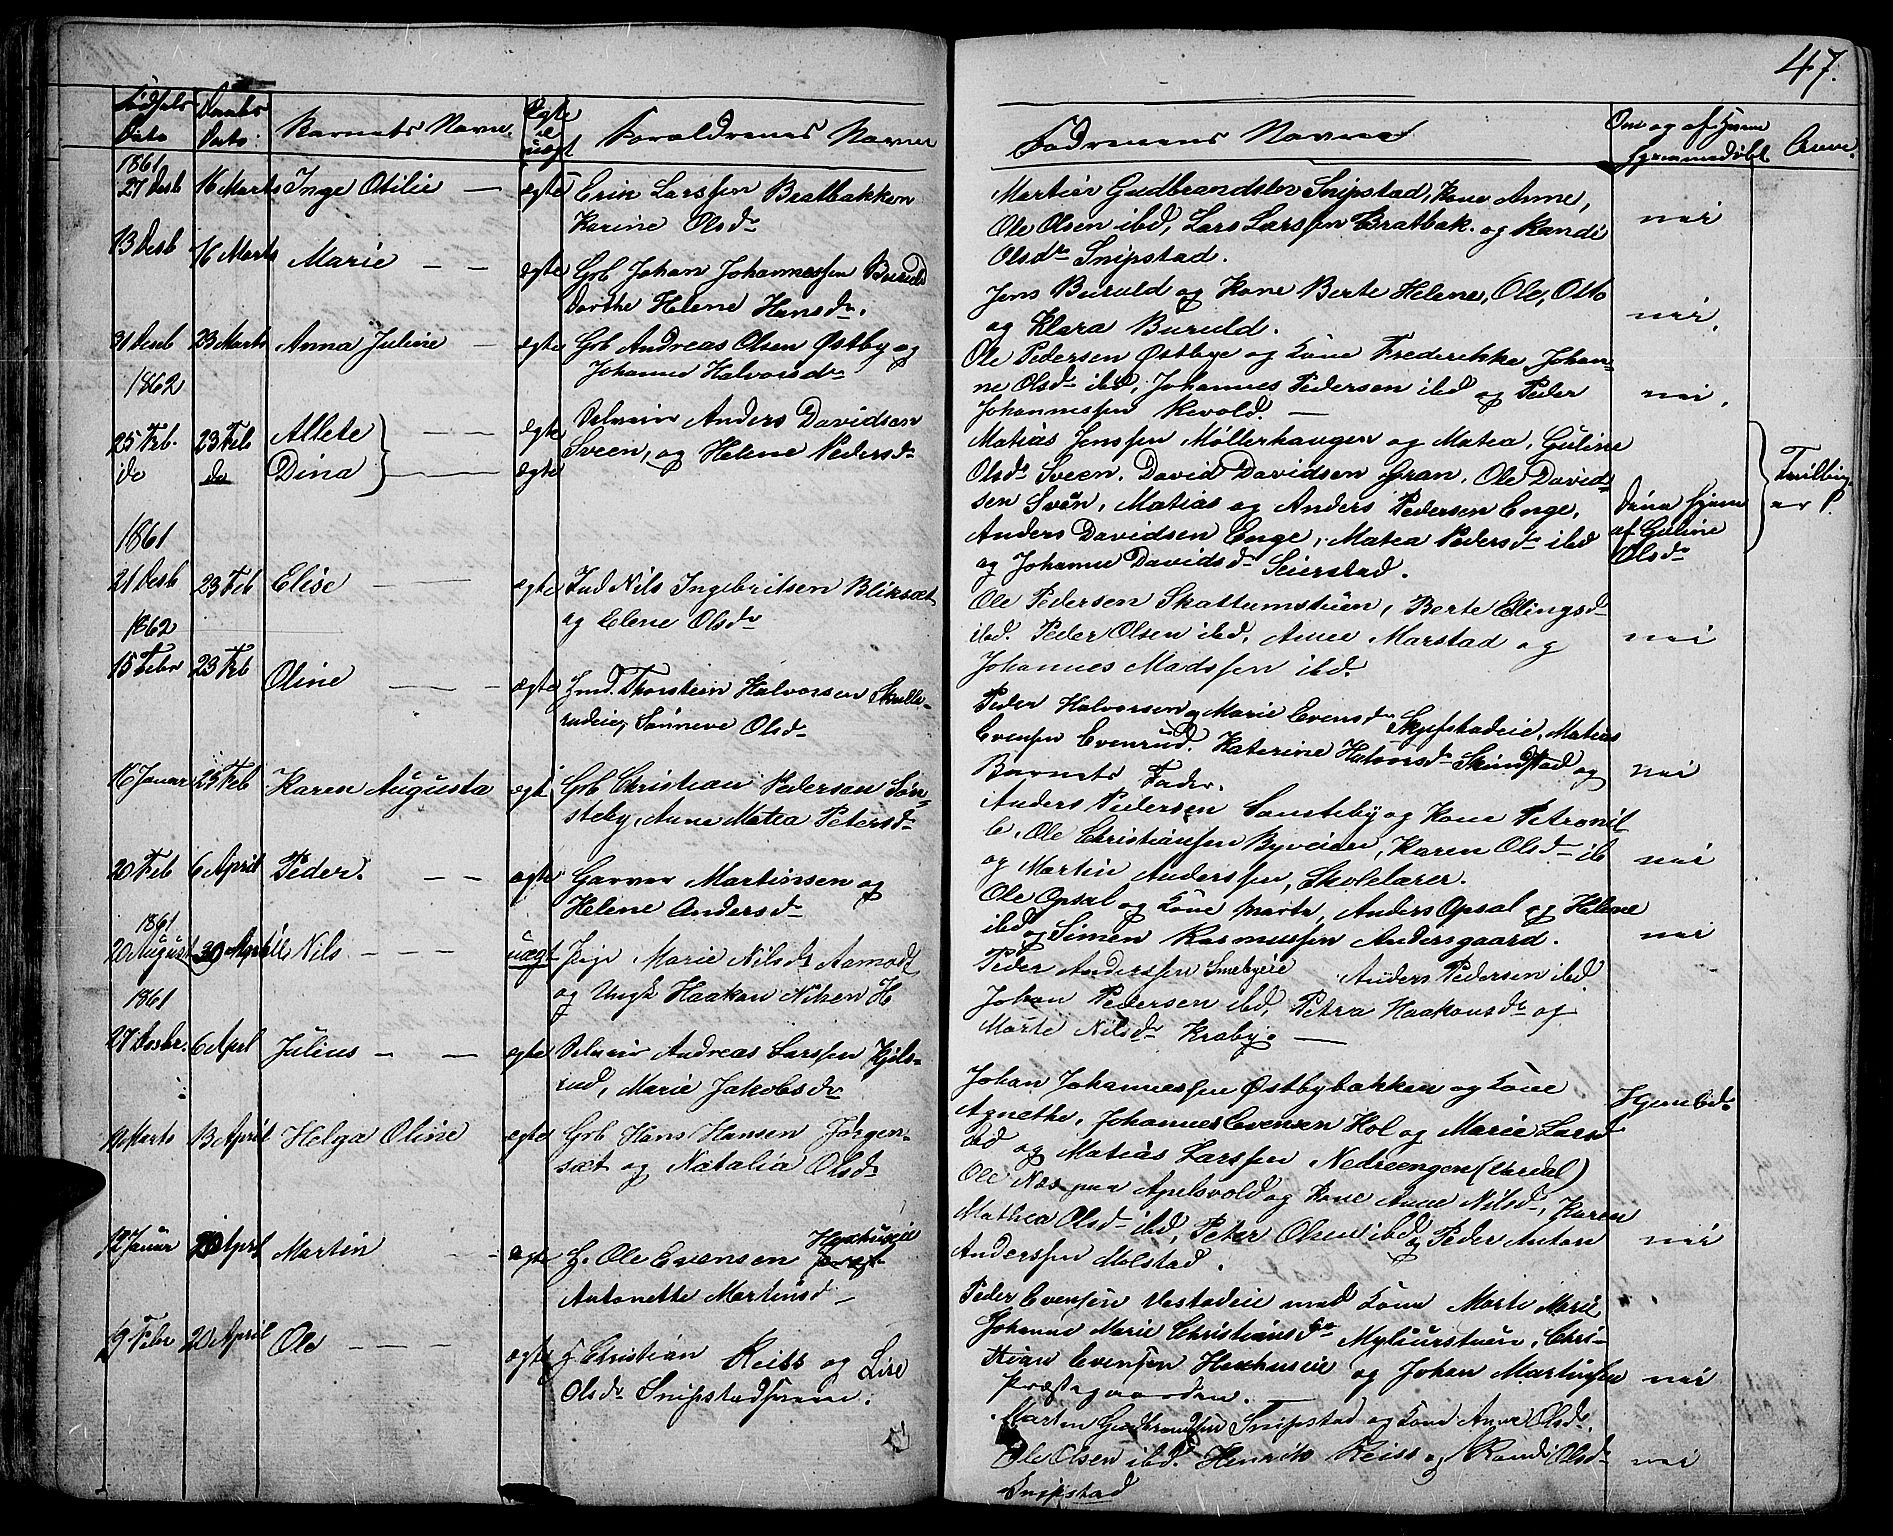 47.
Fødsels Daabs Barnets Navne. Ægte Forældrenes Navne
Dato Dato. el uægt
Faddernes Navne Om og af hvem hjemmedøbt Anm.
1861
27 Desb 16 Marts Inge Otilie — ægte Erik Larssen Bratbakken
Karine Olsdr
Martin Gudbrandsen Snipstad, Kone Anne,
Ole Olsen ibd, Lars Larssen Bratbak. og Randi nei
Olsdr Snipstad.
13 Desb 16 Marts Marie — — ægte Grb Johan Johannessen Buruld
Dorthe Helene Hansdr.
Jens Buruld og Kone Berte Helene, Ole, Otto
og Klara Buruld. nei,
31 Desb 23 Marts Anna Juline — ægte Grb Andreas Olsen Østby og
Johanne Halvorsdr
Ole Pedersen Østbye og Kone Frederikke, Johan-
ne Olsdr ibd, Johannes Pedersen ibd og Peder nei,
Johannessen Kevold. —
1862
25 Feb. 23 Feb Allete — — ægte Anders Davidsen
do do Dina — ægte Sveen, og Helene Pedersdr
Matias Jenssen Møllerhaugen og Matea, Guline
Olsdr Sveen, David Davidsen Gran, Ole David-
sen Svên, Matias og Anders Pedersen Enge,
Anders Davidsen Enge, Matea Pedersdr ibd
og Johanne Davidsdr Seierstad.
Dina hjem
af Guline
Olsdr
Tvilling-
er
1861
21 Desb 23 Feb Elise — — ægte Nils Ingebritsen Bliksæt
og Elene Olsdr
Ole Pedersen Skattumstuen, Berte Ellingsdr
ibd. Peder Olsen ibd, Anne Marstad og nei
Johannes Madssen ibd.
1862
15 Febr 23 Feb Oline — — — ægte Hmd. Thorstein Halvorsen Skulle-
rudeie, Sønneve Olsdr
Peder Halvorsen og Marie Evensdr Skjefstadeie, Matias
Evensen Evenrud. Katerine Halvorsdr Skindstad og
Barnets Fader. nei
16 Januar 25 Feb Karen Augusta ægte Grb Christian Pedersen Søn-
steby, Anne Matea Petersdr
Anders Pedersen Sønsteby og Kone Petronil-
le, Ole Christiansen Byveien, Karen Olsdr ib
og Martin Anderssen, Skolelærer. nei
20 Feb 6 April Peder. — — ægte Garver Martinsen og
Helene Andersdr
Ole Opsal og Kone Marte, Anders Opsal og Helene
ibd og Simen Rasmussen Andersgaard. nei
1861
20 August 30 April Nils — — — uægt Pige Marie Nilsdr Aamodt
og Ungk Haakon Nilsen H
Peder Anderssen Smebyeie Anders Pedersen ibd.
Johan Pedersen ibd, Petra Haakonsdr og
Marte Nilsdr Kraby. —
1861
27 Desbr. 6 Aprl Julius — — ægte Andreas Larssen Kjøls-
rud, Marie Jakobsdr
Johan Johannessen Østbybakken og Kone
Agnethe, Johannes Evensen Hol og Marie Larsdr
ibd og Matias Larssen Nedreengen (Vardal)
Hjemed.
11 Marts 13 April Helga Oline ægte Grb Hans Hansen Jørgen-
sæt og Natalia Olsdr
Ole Næs paa Apelsvold og Kone Anne Nilsdr, Karen
Mathea Olsdr ibd, Peter Olsen ibd og Peder Anton
Anderssen Molstad. nei
12 Januar 20 Aprl Martin — — ægte H. Ole Evensen Haxhuseie
Antonette Martinsd —
Peder Evensen Vestadeie med Kone Marte Marie
Johanne Marie Christiansdr Myliusstuen, Chri-
stian Evensen Haxhuseie og Johan Martinsen nei
Præstegaarden.
19 Febr 20 April Ole — — — ægte H. Christian Reiss og Lise
Olsdr Snipstad
Martin Gudbrandsen Snipstad og Kone Anne Olsdr.
Ole Olsen ibd. Henrik Reiss og Randi Olsdr nei
Snipstad